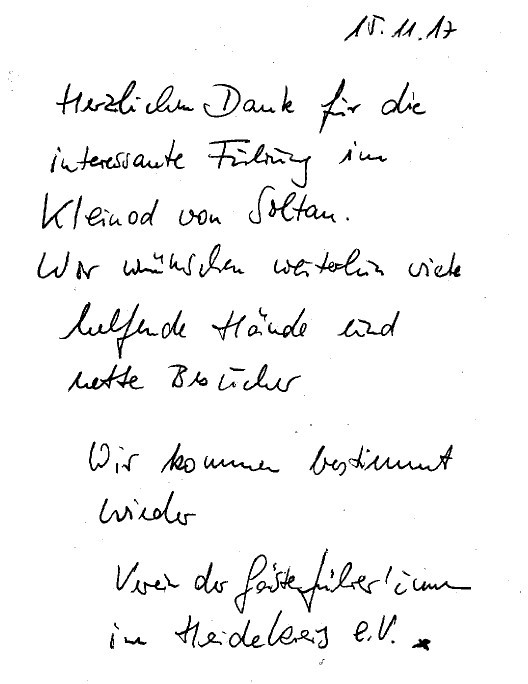 15.11.17
Herzlichen Dank für die
interessante Führung im
Kleinod von Soltau.
Wir wünschen weiterhin viele
helfende Hände und
nette Besucher
Wir kommen bestimmt
wieder
Verein der Gästeführer/innen
im Heidekreis e.V.